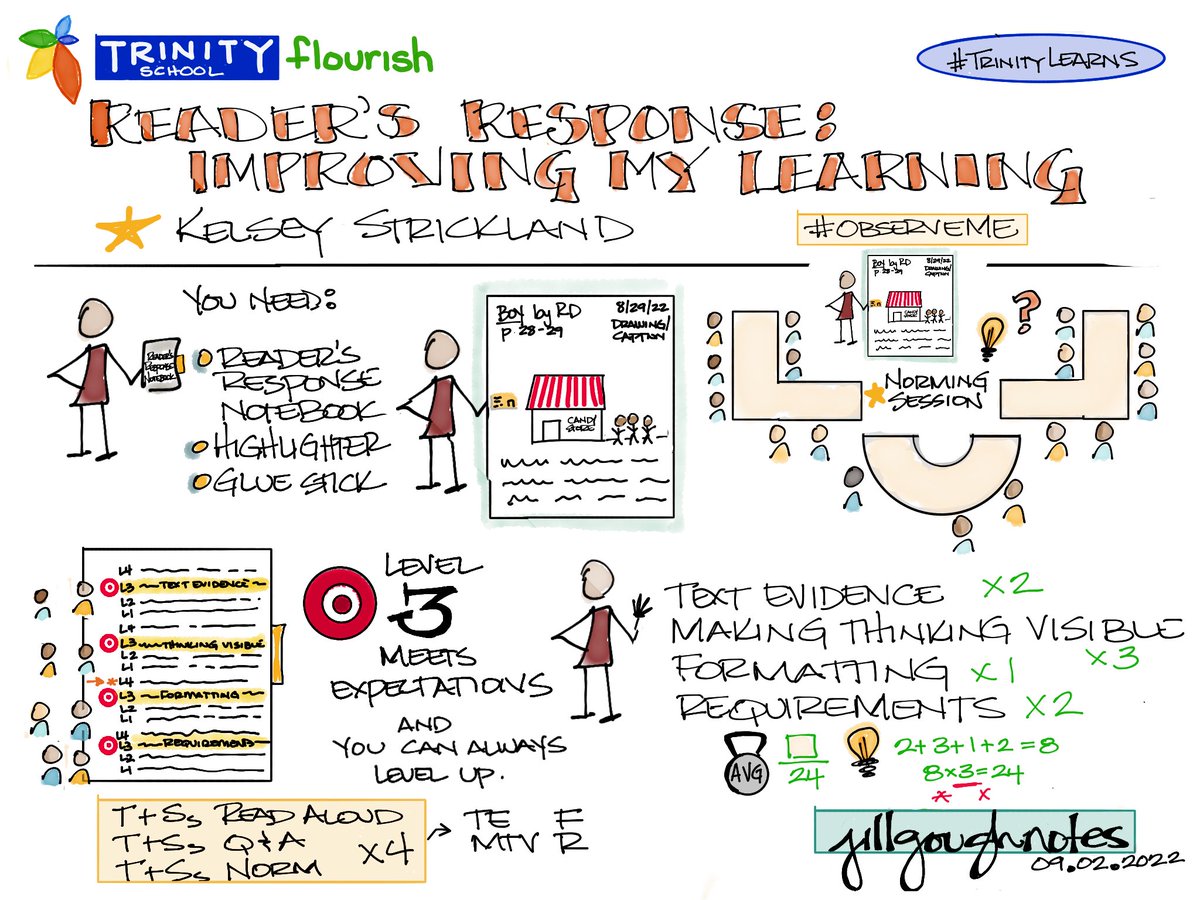 TRINITY
SCHOOL
flourish
#TRINITYLEARNS
READER'S RESPONSE:
IMPROVING MY LEARNING
KELSEY STRICKLAND
#OBSERVEME
YOU NEED:
READER'S
RESPONSE
NOTEBOOK
HIGHLIGHTER
GLUE STICK
READER'S
RESPONSE
NOTEBOOK
Boy by RD
p. 28-29
8/29/22
DRAWING/
CAPTION
CANDY
STORE
Boy by RD
p. 28-29
8/29/22
DRAWING/
CAPTION
CANDY
STORE
?
NORMING
SESSION
L4
L3 TEXT EVIDENCE
L2
L1
L4
L3 THINKING VISIBLE
L2
L1
→*L4
L3 FORMATTING
L2
L1
L4
L3 REQUIREMENTS
L2
L1
LEVEL
3
MEETS
EXPECTATIONS
AND
YOU CAN ALWAYS
LEVEL UP.
TEXT EVIDENCE x2
MAKING THINKING VISIBLE
x3
FORMATTING x1
REQUIREMENTS x2
AVG
□/24
2+3+1+2=8
8x3=24
* x
T+Ss READ ALOUD
T+Ss Q&A
T+Ss NORM
x4
→ TE F
MTV R
jillgoughnotes
09.02.2022